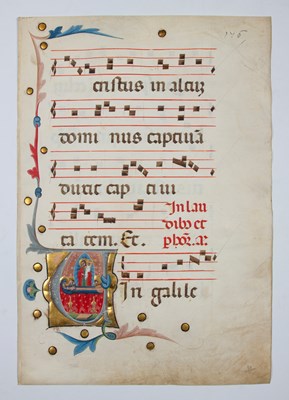 cristus in altuȝ
domi nus captiuā
duxit cap ti ui
ta tem. Et. In lau
dibꝰ et
In galile